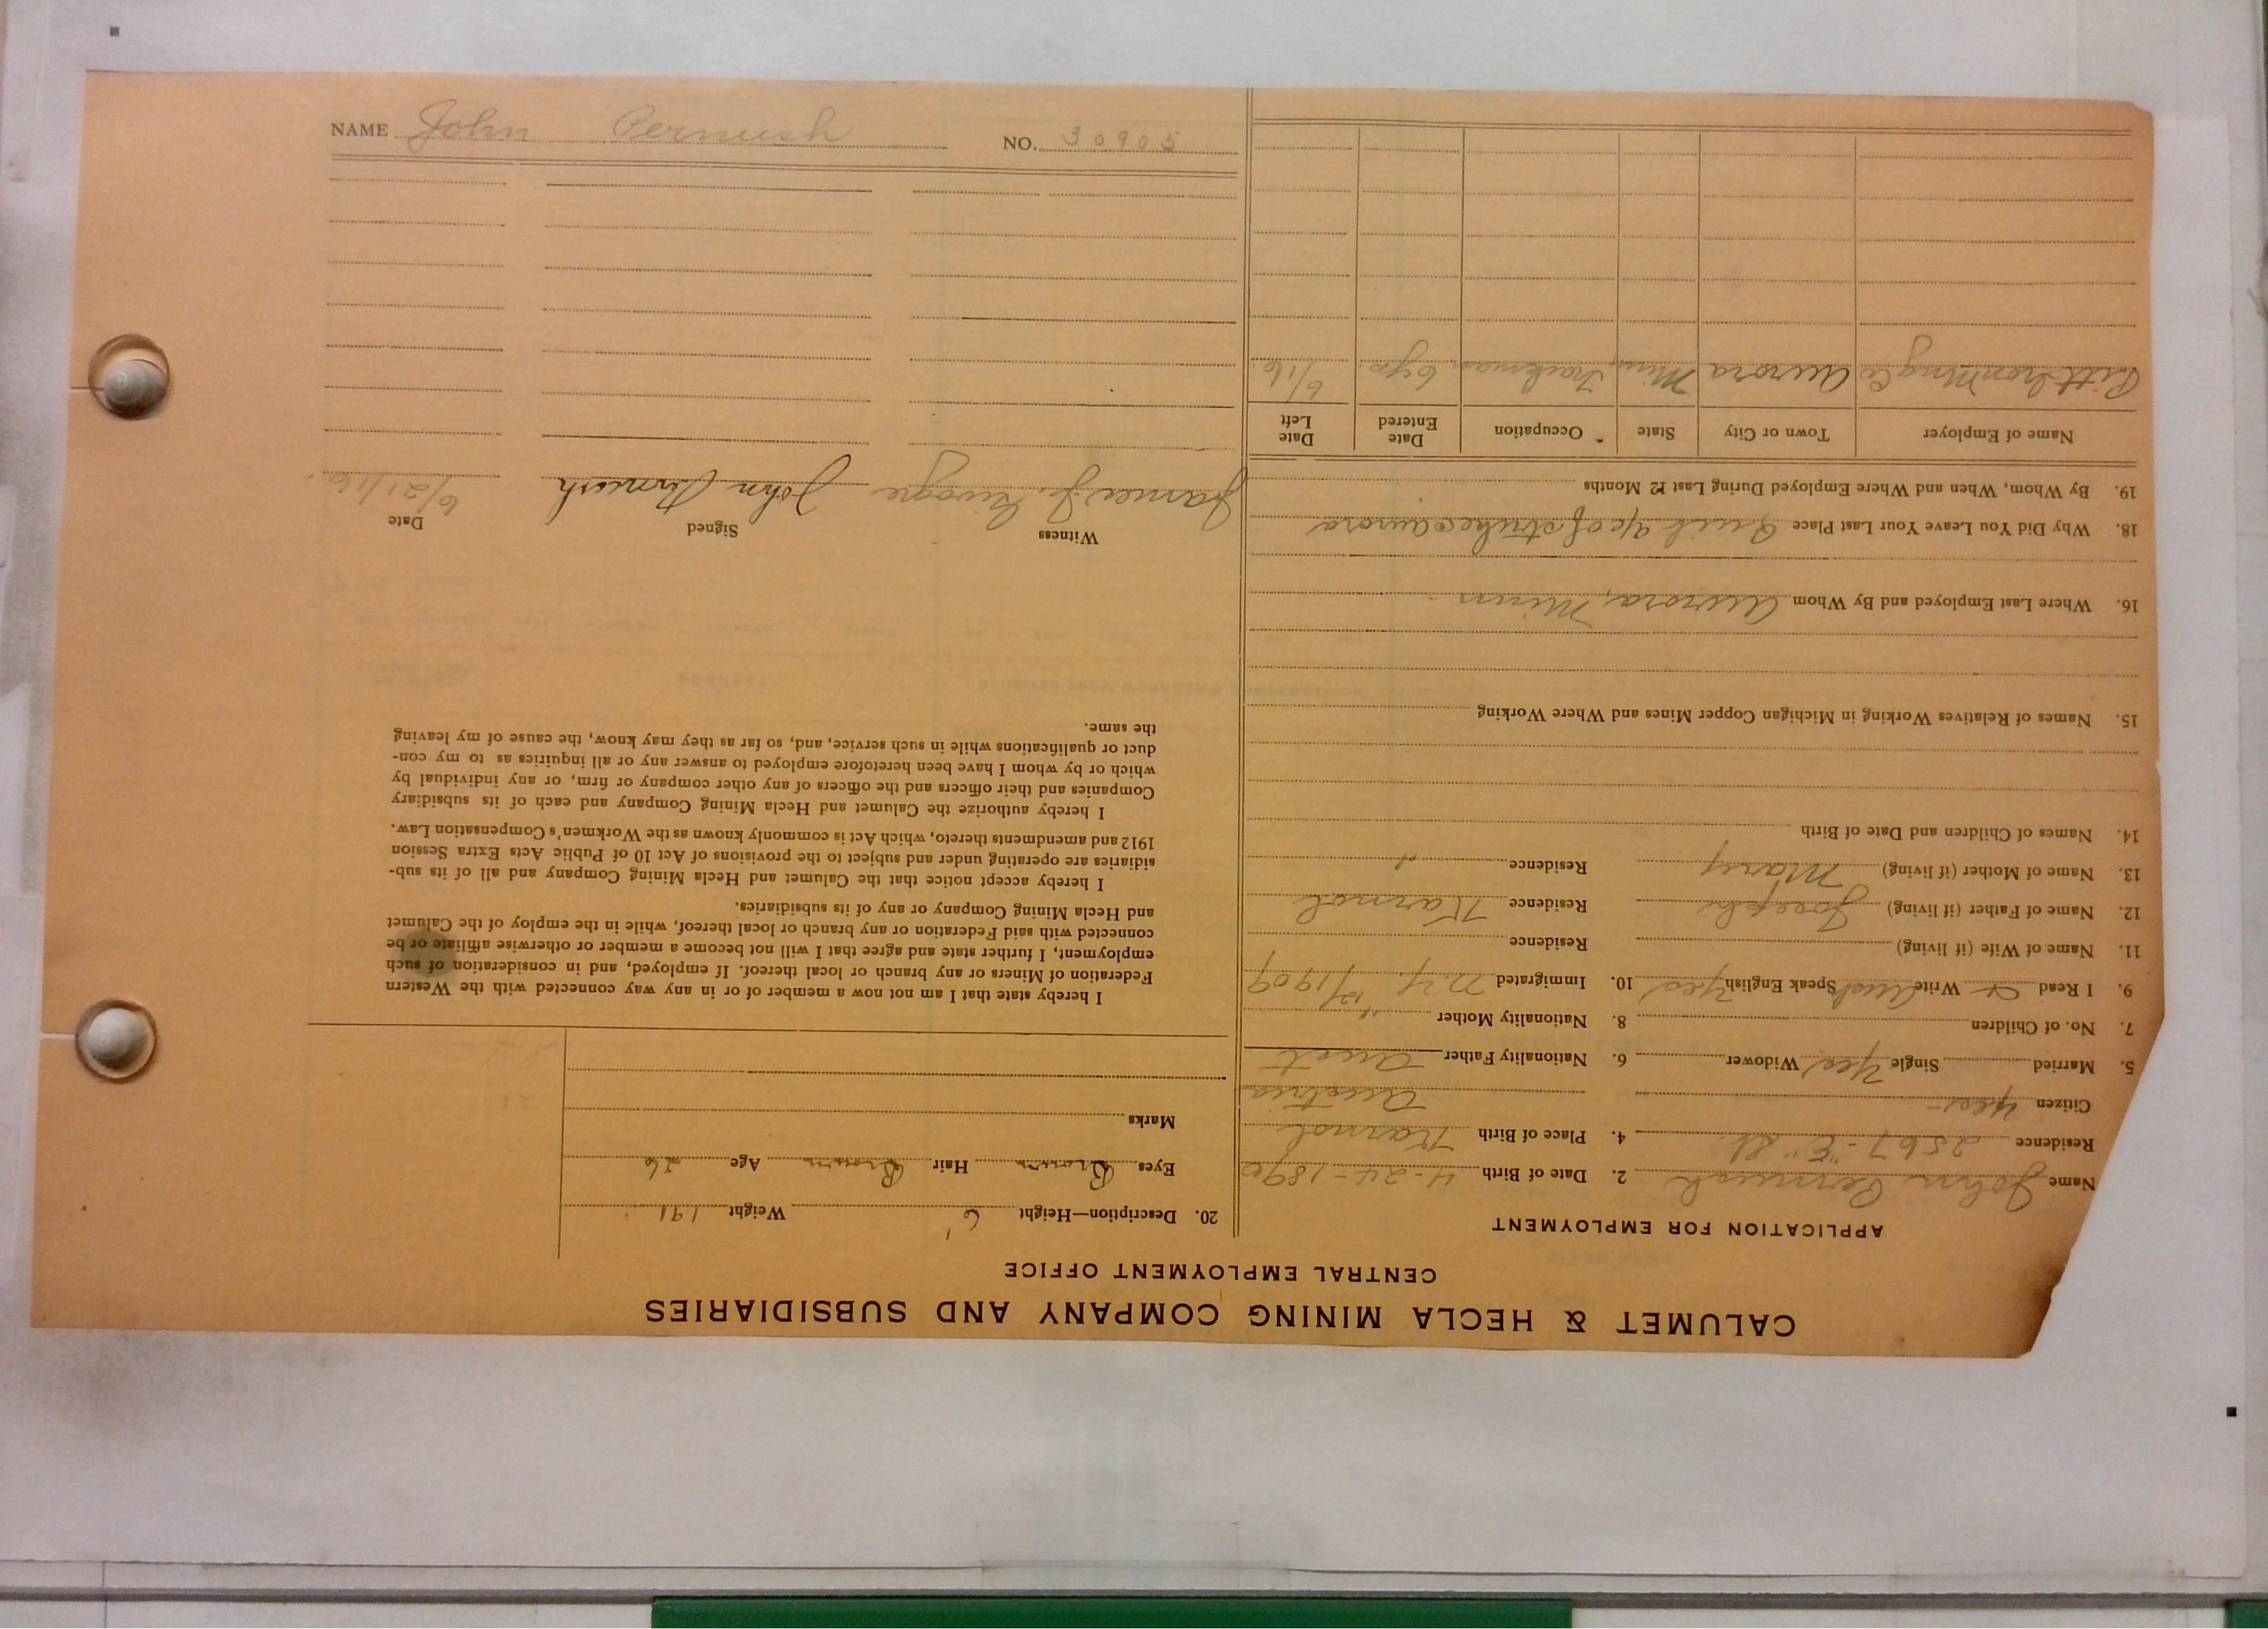 CALUMET & HECLA MINING COMPANY AND SUBSIDIARIES
CENTRAL EMPLOYMENT OFFICE
APPLICATION FOR EMPLOYMENT
Name John Pernush 2. Date of Birth 4-24-1890
Residence 2567-"E" St. 4. Place of Birth Karnol
Citizen yes- Austria
5. Married Single Yes Widower 6. Nationality Father Aust
7. No. of Children 8. Nationality Mother "
9. I Read & Write Aust Speak English Yes 10. Immigrated N.Y. 1909
11. Name of Wife (if living) Residence
12. Name of Father (if living) Joseph Residence Karnol
13. Name of Mother (if living) Mary Residence "
14. Names of Children and Date of Birth
15. Names of Relatives Working in Michigan Copper Mines and Where Working
16. Where Last Employed and By Whom Aurora, Minn
18. Why Did You Leave Your Last Place Quit a/c of strike Aurora
19. By Whom, When and Where Employed During Last 12 Months
Name of Employer Town or City State Occupation Date Entered Date Left
Pitt Iron Mng Co Aurora Minn Trackman 6 yrs. 6/16.
20. Description—Height 6' Weight 191
Eyes Brown Hair Brown Age 26
Marks
I hereby state that I am not now a member of or in any way connected with the Western
Federation of Miners or any branch or local thereof. If employed, and in consideration of such
employment, I further state and agree that I will not become a member or otherwise affiliate or be
connected with said Federation or any branch or local thereof, while in the employ of the Calumet
and Hecla Mining Company or any of its subsidiaries.
I hereby accept notice that the Calumet and Hecla Mining Company and all of its sub-
sidiaries are operating under and subject to the provisions of Act 10 of Public Acts Extra Session
1912 and amendments thereto, which Act is commonly known as the Workmen's Compensation Law.
I hereby authorize the Calumet and Hecla Mining Company and each of its subsidiary
Companies and their officers and the officers of any other company or firm, or any individual by
which or by whom I have been heretofore employed to answer any or all inquiries as to my con-
duct or qualifications while in such service, and, so far as they may know, the cause of my leaving
the same.
Witness Signed Date
James J. John Pernush 6/21/16.
NAME John Pernush NO. 30905